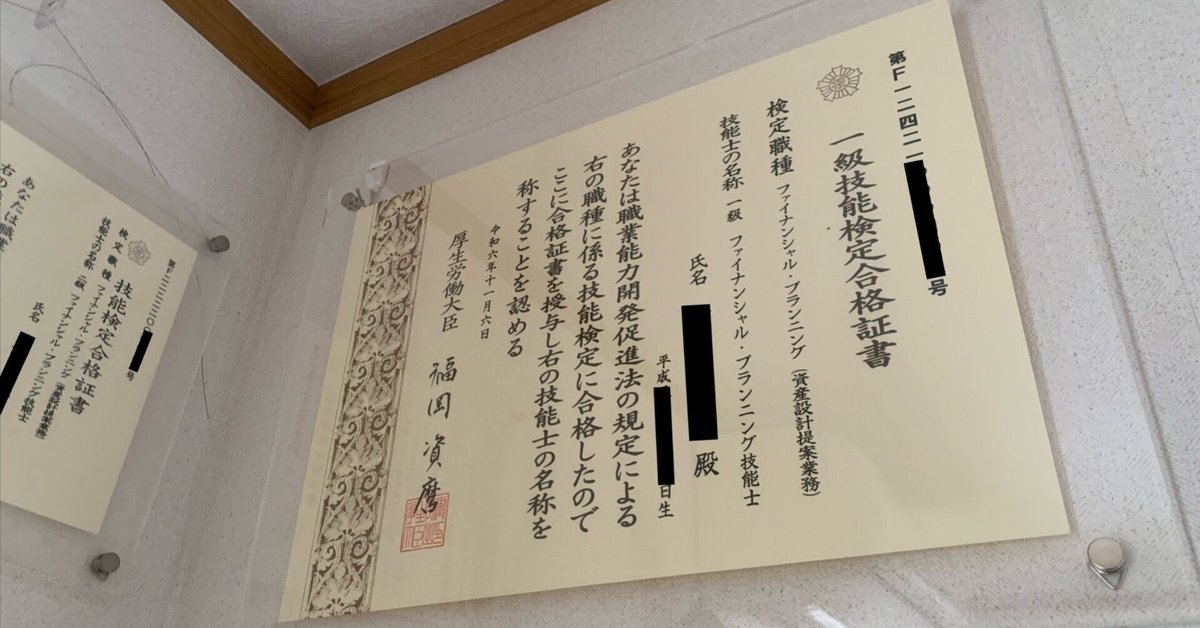 第F一二四二一 号
一級技能検定合格証書
検定職種 ファイナンシャル・プランニング(資産設計提案業務)
技能士の名称 一級 ファイナンシャル・プランニング技能士
氏名 殿
平成 日生
あなたは職業能力開発促進法の規定による
右の職種に係る技能検定に合格したので
ここに合格証書を授与し右の技能士の名称を
称することを認める
令和六年十一月六日
厚生労働大臣 福岡資麿
号
技能検定合格証書
検定職種 ファイナンシャル・プランニング(資産設計提案業務
技能士の名称 二級 ファイナンシャル・プランニング技能士
氏名
あなたは職業
右の